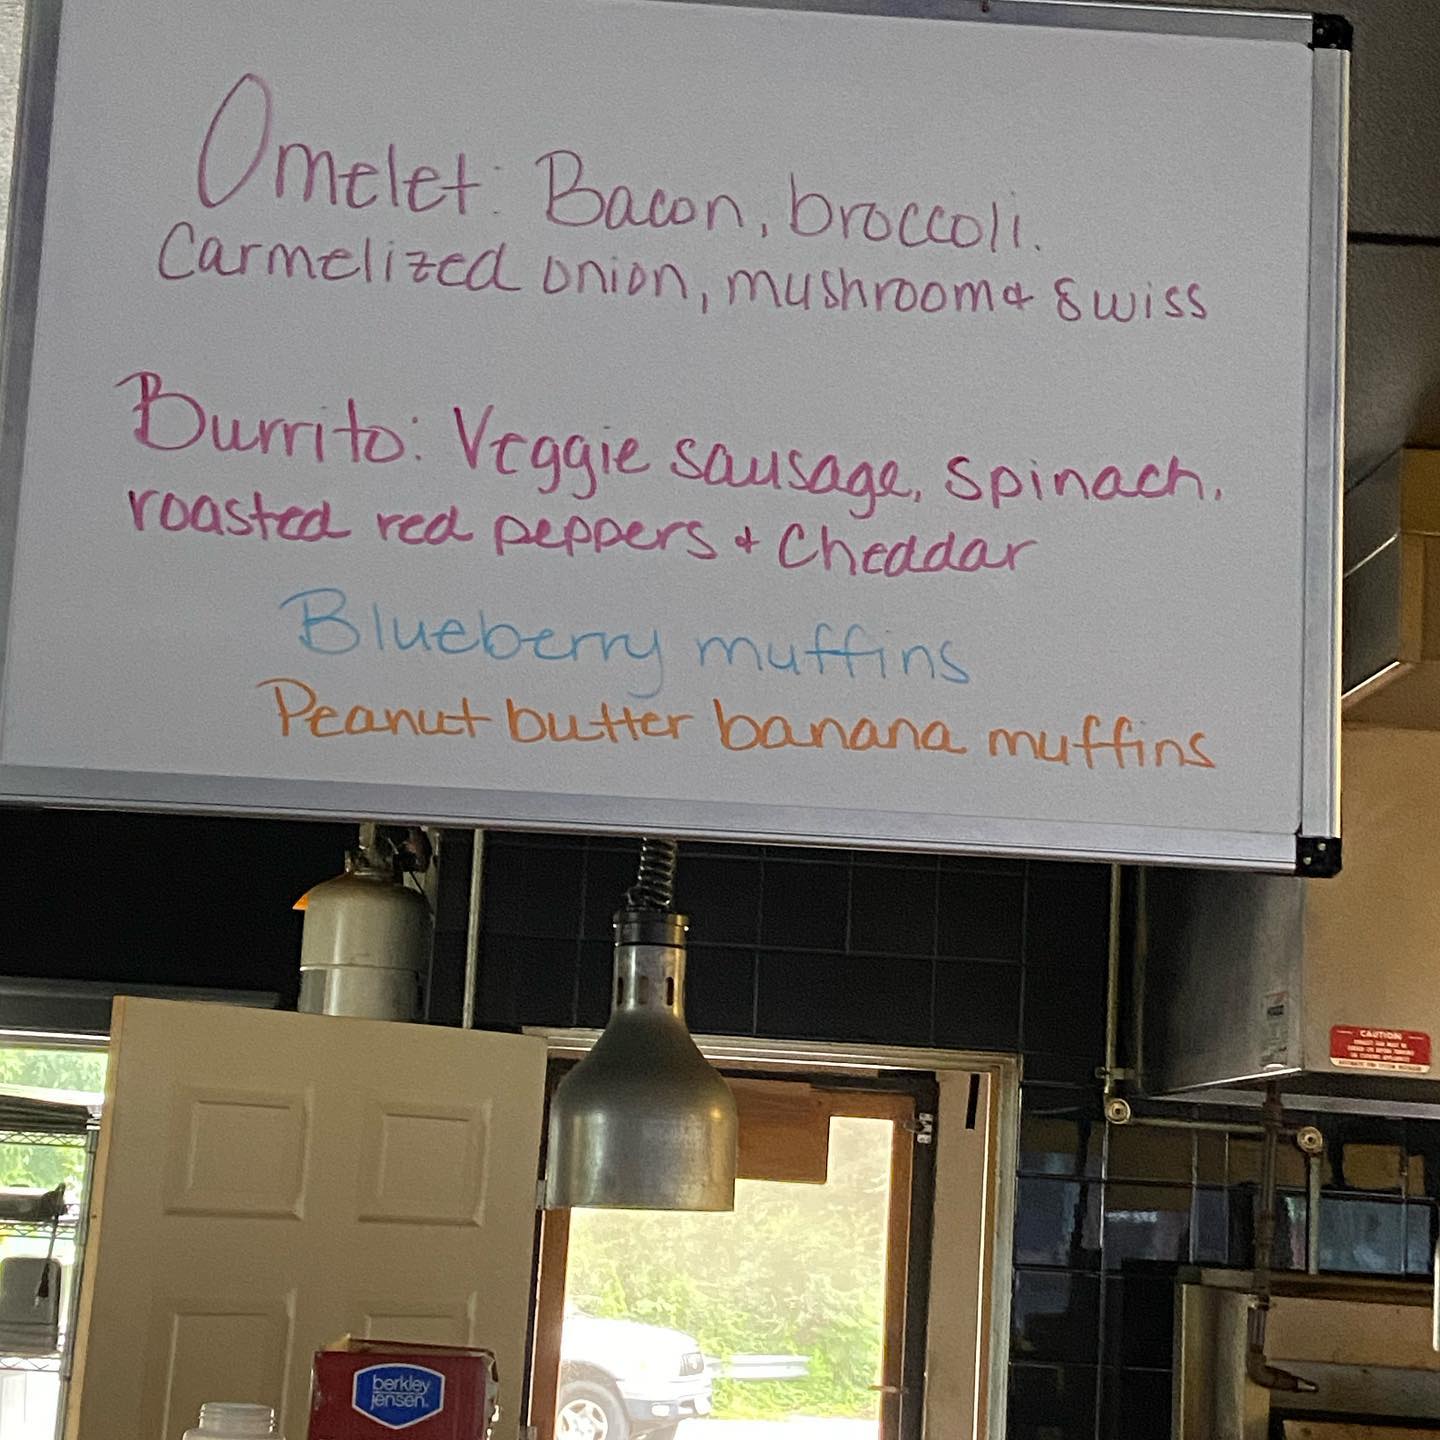 Omelet: Bacon, broccoli.
Carmelized onion, mushroom & Swiss
Burrito: Veggie sausage, spinach,
roasted red peppers & Cheddar
Blueberry muffins
Peanut butter banana muffins
CAUTION
berkley
jensen.